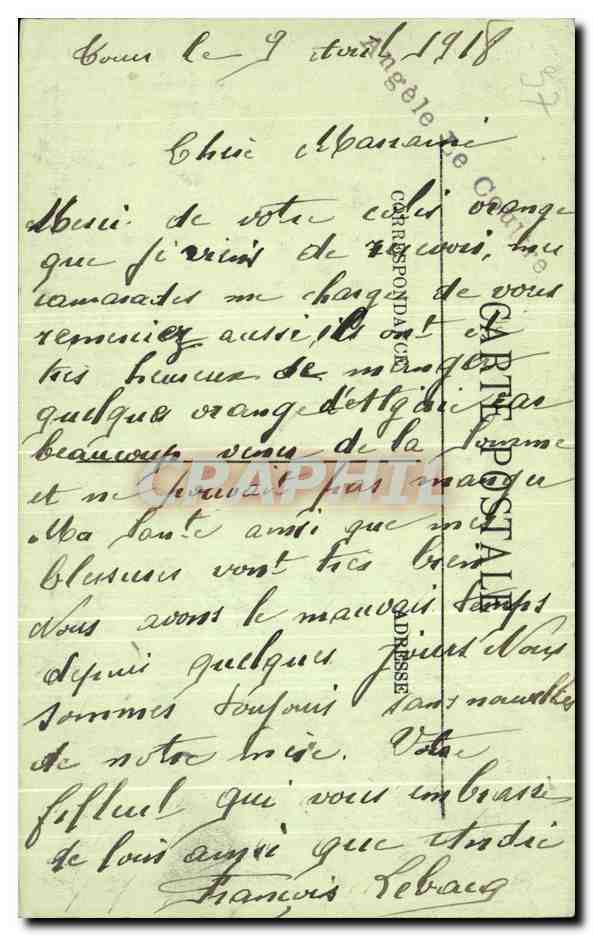 Tours le 9 Avril 1918
Angèle Le Coultre
Chère Marraine
Merci de votre colis orange
que je viens de recevois, mes
camarades me charge de vous
remerciez aussi, ils ont été
très heureux de manger
quelques orange d'Algérie car
beaucoup venes de la Somme
et ne pouvait pas manger
Ma santé ainsi que mes
blessures vont très bien
Nous avons le mauvais temps
depuis quelques jours Nous
sommes toujours sans nouvelles
de notre mère. Votre
filleul qui vous embrasse
de lois ainsi que André
François Lebacq
CARTE POSTALE
CORRESPONDANCE
ADRESSE
CPAPHIL